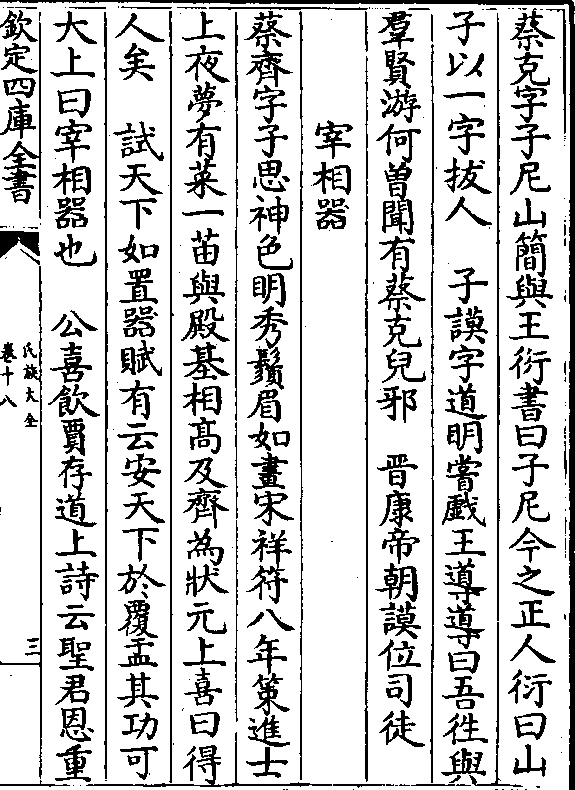 蔡克字子尼山簡與王衍書曰子尼今之正人衍曰山
子以一字拔人　子謨字道明嘗戲王導導曰吾徃與
羣賢游何曽聞有蔡克兒邪　晋康帝朝謨位司徒
宰相器
蔡齊字子思神色明秀鬚眉如畫宋祥符八年策進士
上夜夢有菜一苗與殿基相髙及齊為狀元上喜曰得
人矣　試天下如置器賦有云安天下於覆盂其功可
大上曰宰相器也　公喜飲賈存道上詩云聖君恩重
欽定四庫全書
氏族大全
卷十八
三